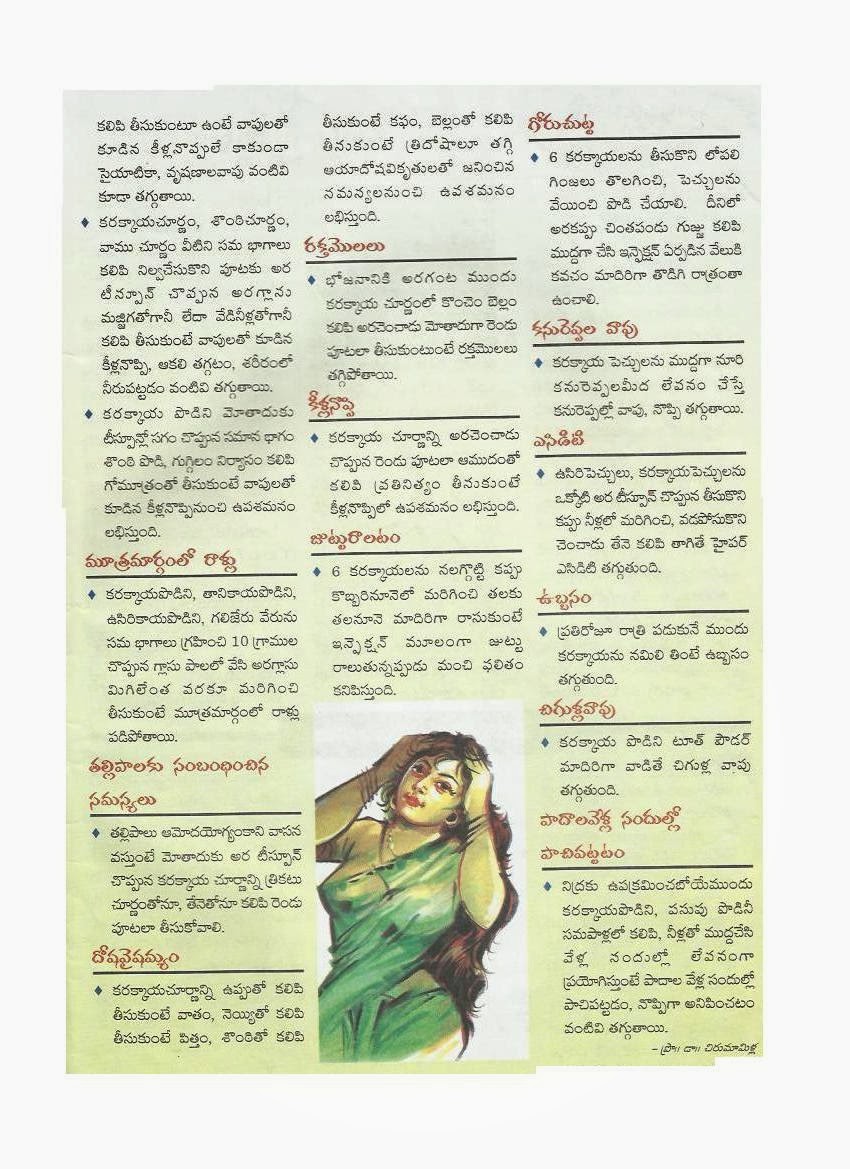 కలిపి తీసుకుంటూ ఉంటే వాపులతో
కూడిన కీళ్లనొప్పులే కాకుండా
సైయాటికా, వృషణాలవాపు వంటివి
కూడా తగ్గుతాయి.
♦ కరక్కాయచూర్ణం, శొంఠిచూర్ణం,
వాము చూర్ణం వీటిని సమ భాగాలు
కలిపి నిల్వచేసుకొని పూటకు అర
టీస్పూన్ చొప్పున అరగ్లాను
మజ్జిగతోగానీ లేదా వేడినీళ్లతోగానీ
కలిపి తీసుకుంటే వాపులతో కూడిన
కీళ్లనొప్పి, ఆకలి తగ్గటం, శరీరంలో
నీరుపట్టడం వంటివి తగ్గుతాయి.
♦ కరక్కాయ పొడిని మోతాదుకు
టీస్పూన్లో సగం చొప్పున సమాన భాగం
శొంఠి పొడి, గుగ్గిలం నిర్యాసం కలిపి
గోమూత్రంతో తీసుకుంటే వాపులతో
కూడిన కీళ్లనొప్పినుంచి ఉపశమనం
లభిస్తుంది.
మూత్రమార్గంలో రాళ్లు
♦ కరక్కాయపొడిని, తానికాయపొడిని,
ఉసిరికాయపొడిని, గలిజేరు వేరును
సమ భాగాలు గ్రహించి 10 గ్రాముల
చొప్పున గ్లాసు పాలలో వేసి అరగ్లాసు
మిగిలేంత వరకూ మరిగించి
తీసుకుంటే మూత్రమార్గంలో రాళ్లు
పడిపోతాయి.
తల్లిపాలకు సంబంధించిన
సమస్యలు
♦ తల్లిపాలు ఆమోదయోగ్యంకాని వాసన
వస్తుంటే మోతాదుకు అర టీస్పూన్
చొప్పున కరక్కాయ చూర్ణాన్ని త్రికటు
చూర్ణంతోనూ, తేనెతోనూ కలిపి రెండు
పూటలా తీసుకోవాలి.
దోషవైషమ్యం
♦ కరక్కాయచూర్ణాన్ని ఉప్పుతో కలిపి
తీసుకుంటే వాతం, నెయ్యితో కలిపి
తీసుకుంటే పిత్తం, శొంఠితో కలిపి
తీసుకుంటే కఫం, బెల్లంతో కలిపి
తీనుకుంటే త్రిదోషాలూ తగ్గి
ఆయాదోషవికృతులతో జనించిన
నమన్యలనుంచి ఉపశమనం
లభిస్తుంది.
రక్తమొలలు
♦ భోజనానికి అరగంట ముందు
కరక్కాయ చూర్ణంలో కొంచెం బెల్లం
కలిపి అరచెంచాడు మోతాదుగా రెండు
పూటలా తీసుకుంటుంటే రక్తమొలలు
తగ్గిపోతాయి.
కీళ్లనొప్పి
♦ కరక్కాయ చూర్ణాన్ని అరచెంచాడు
చొప్పున రెండు పూటలా ఆముదంతో
కలిపి ప్రతినిత్యం తీనుకుంటే
కీళ్లనొప్పిలో ఉపశమనం లభిస్తుంది.
జుట్టురాలటం
♦ 6 కరక్కాయలను నలగ్గొట్టి కప్పు
కొబ్బరినూనెలో మరిగించి తలకు
తలనూనె మాదిరిగా రాసుకుంటే
ఇన్ఫెక్షన్ మూలంగా జుట్టు
రాలుతున్నప్పుడు మంచి ఫలితం
కనిపిస్తుంది.
గోరుచుట్ట
♦ 6 కరక్కాయలను తీసుకొని లోపలి
గింజలు తొలగించి, పెచ్చులను
వేయించి పొడి చేయాలి. దీనిలో
అరకప్పు చింతపండు గుజ్జు కలిపి
ముద్దగా చేసి ఇన్ఫెక్షన్ ఏర్పడిన వేలుకి
కవచం మాదిరిగా తొడిగి రాత్రంతా
ఉంచాలి.
కనురెప్పల వాపు
♦ కరక్కాయ పెచ్చులను ముద్దగా నూరి
కనురెప్పలమీద లేవనం చేస్తే
కనురెప్పల్లో వాపు, నొప్పి తగ్గుతాయి.
ఎసిడిటి
♦ ఉసిరిపెచ్చులు, కరక్కాయపెచ్చులను
ఒక్కోటి అర టీస్పూన్ చొప్పున తీసుకొని
కప్పు నీళ్లలో మరిగించి, వడపోసుకొని
చెంచాడు తేనె కలిపి తాగితే హైపర్
ఎసిడిటి తగ్గుతుంది.
ఉబ్బసం
♦ ప్రతిరోజూ రాత్రి పడుకునే ముందు
కరక్కాయను నమిలి తింటే ఉబ్బసం
తగ్గుతుంది.
చిగుళ్లవాపు
♦ కరక్కాయ పొడిని టూత్ పౌడర్
మాదిరిగా వాడితే చిగుళ్ల వాపు
తగ్గుతుంది.
పాదాలవేళ్ల సందుల్లో
పాచిపట్టటం
♦ నిద్రకు ఉపక్రమించబోయేముందు
కరక్కాయపొడిని, పసుపు పొడినీ
సమపాళ్లలో కలిపి, నీళ్లతో ముద్దచేసి
వేళ్ల నందుల్లో లేవనంగా
ప్రయోగిస్తుంటే పాదాల వేళ్ల సందుల్లో
పాచిపట్టడం, నొప్పిగా అనిపించటం
వంటివి తగ్గుతాయి.
– ప్రొ॥ డా॥ చిరుమామిళ్ల